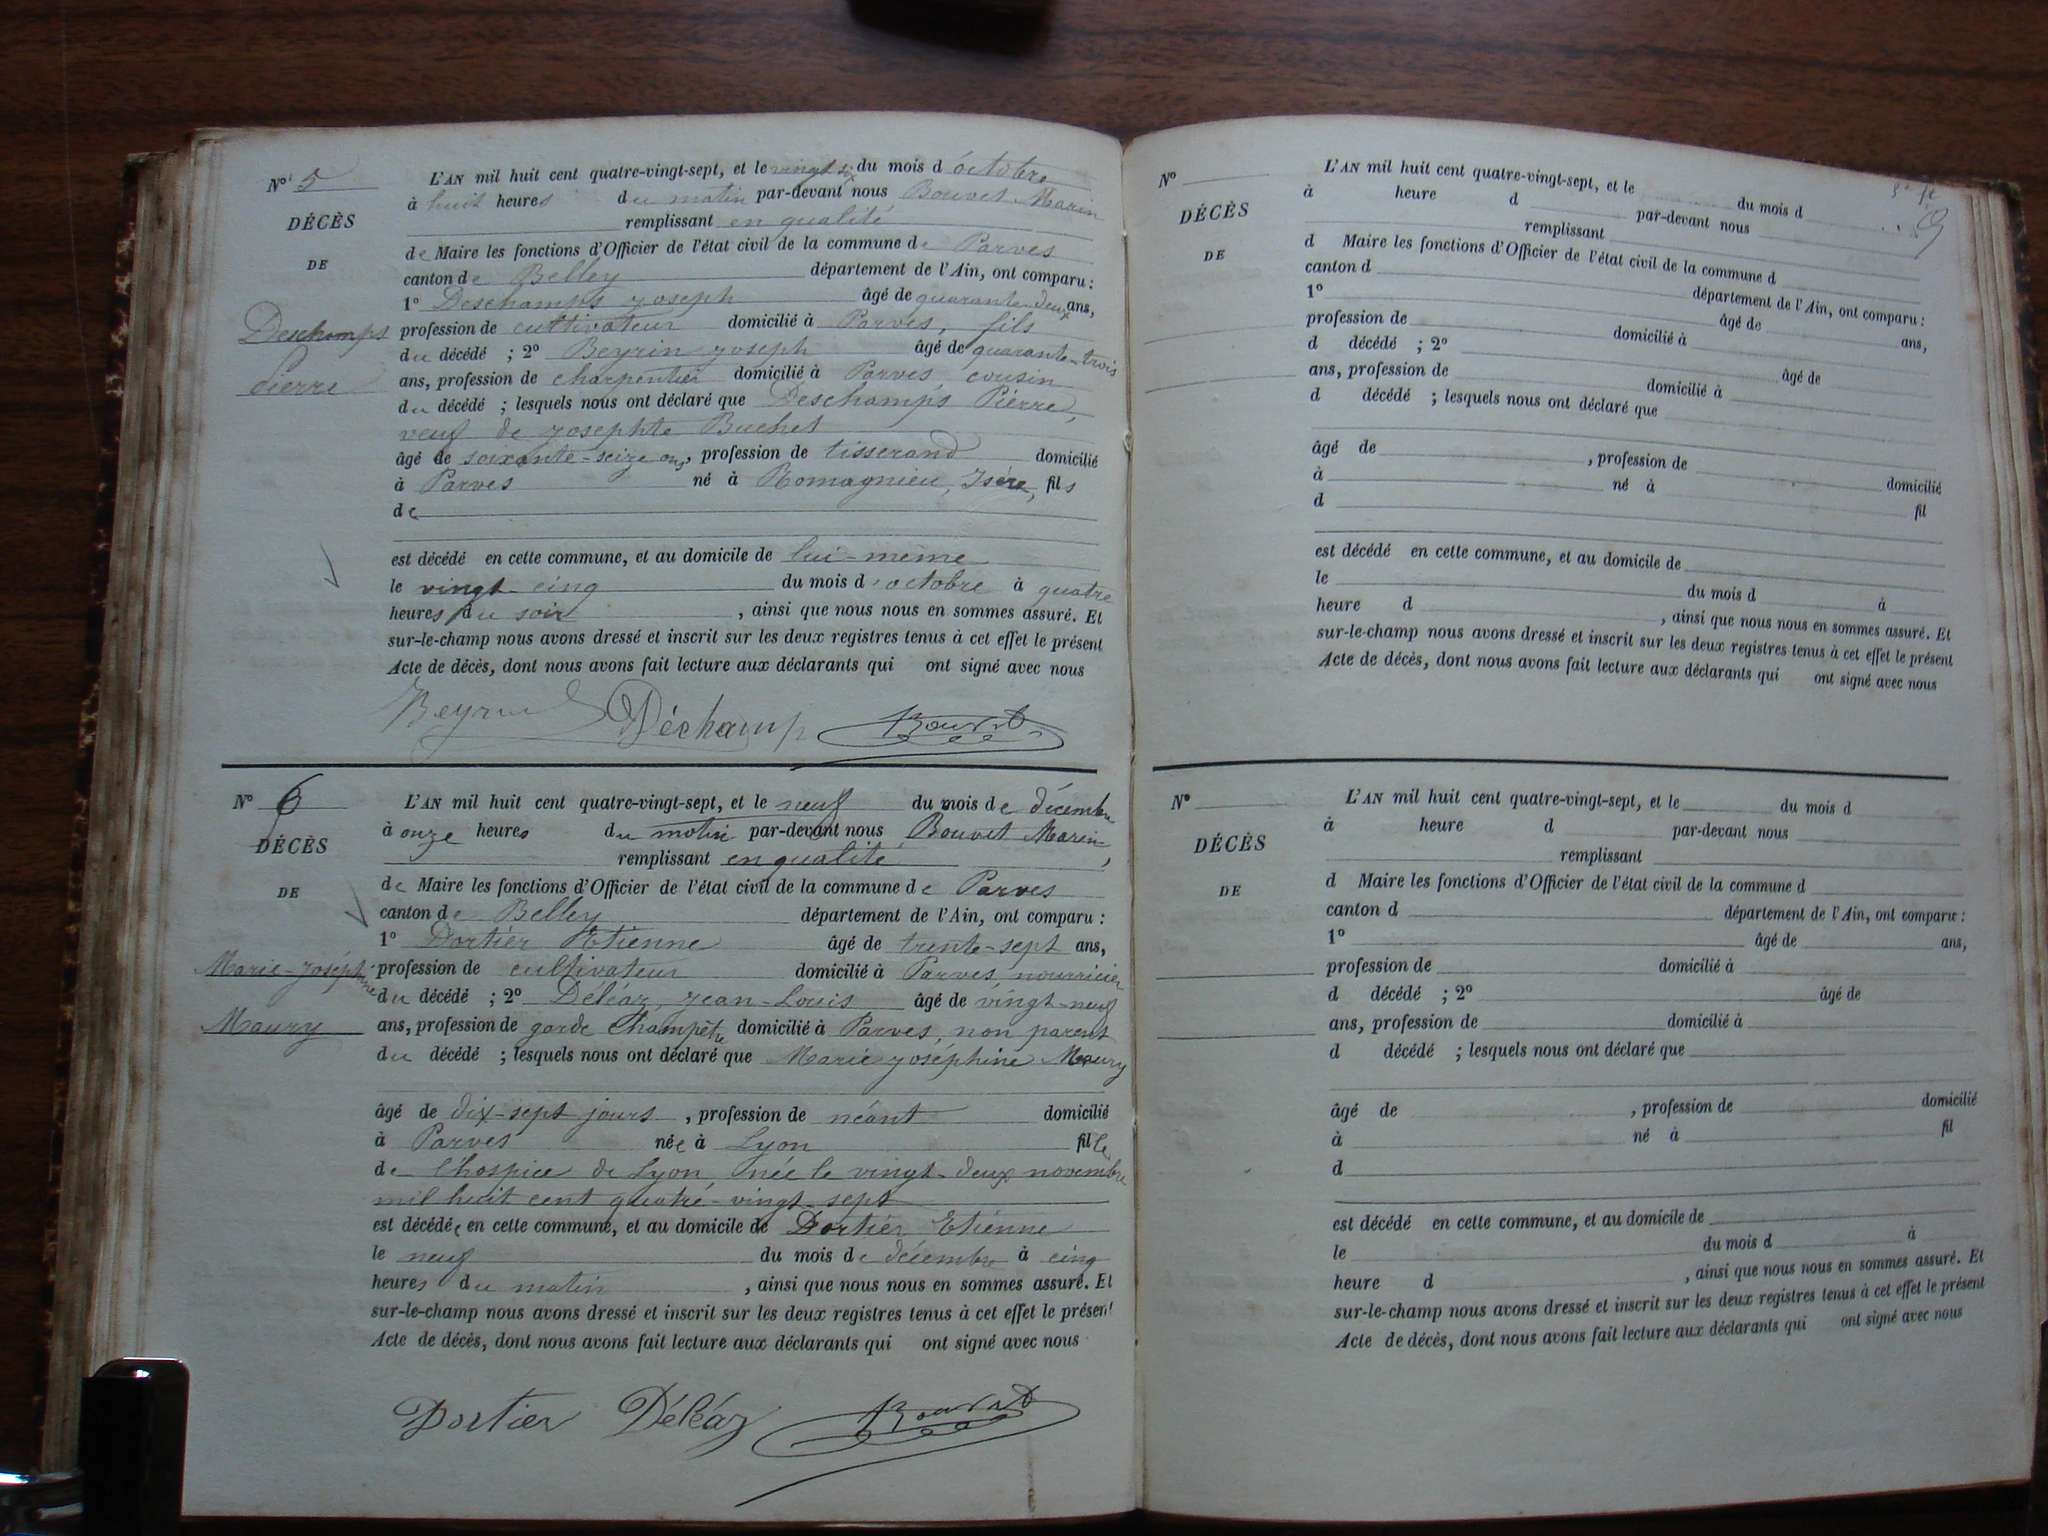 N° 5
DÉCÈS
DE
Deschamps
Pierre
L'AN mil huit cent quatre-vingt-sept, et le vingt six du mois d'octobre
à huit heures du matin par-devant nous Bouvet Marin
remplissant en qualité
de Maire les fonctions d'Officier de l'état civil de la commune de Parves
canton de Belley département de l'Ain, ont comparu :
1° Deschamps Joseph âgé de quarante-deux ans,
profession de cultivateur domicilié à Parves, fils
du décédé ; 2° Beyrin Joseph âgé de quarante-trois
ans, profession de charpentier domicilié à Parves, cousin
du décédé ; lesquels nous ont déclaré que Deschamps Pierre,
veuf de Josephte Buchet
âgé de soixante-seize ans, profession de tisserand domicilié
à Parves né à Romagnieu, Isère, fils
de
est décédé en cette commune, et au domicile de lui-même
le vingt-cinq du mois d'octobre à quatre
heures du soir, ainsi que nous nous en sommes assuré. Et
sur-le-champ nous avons dressé et inscrit sur les deux registres tenus à cet effet le présent
Acte de décès, dont nous avons fait lecture aux déclarants qui ont signé avec nous
Beyrin Déchamp Bouvet
N° 6
DÉCÈS
DE
Marie-Joséphine
Maury
L'AN mil huit cent quatre-vingt-sept, et le neuf du mois de décembre
à onze heures du matin par-devant nous Bouvet Marin,
remplissant en qualité
de Maire les fonctions d'Officier de l'état civil de la commune de Parves
canton de Belley département de l'Ain, ont comparu :
1° Dortier Etienne âgé de trente-sept ans,
profession de cultivateur domicilié à Parves, nourricier
du décédé ; 2° Déléaz Jean-Louis âgé de vingt-neuf
ans, profession de garde champêtre domicilié à Parves, non parent
du décédé ; lesquels nous ont déclaré que Marie Joséphine Maury
âgé de dix-sept jours, profession de néant domicilié
à Parves née à Lyon fille
de l'hospice de Lyon, née le vingt-deux novembre
mil huit cent quatre-vingt-sept
est décédée en cette commune, et au domicile de Dortier Etienne
le neuf du mois de décembre à cinq
heures du matin, ainsi que nous nous en sommes assuré. Et
sur-le-champ nous avons dressé et inscrit sur les deux registres tenus à cet effet le présent
Acte de décès, dont nous avons fait lecture aux déclarants qui ont signé avec nous
Dortier Déléaz Bouvet
N°
DÉCÈS
DE
L'AN mil huit cent quatre-vingt-sept, et le du mois d
à heure d par-devant nous
remplissant
d Maire les fonctions d'Officier de l'état civil de la commune d
canton d département de l'Ain, ont comparu :
1° âgé de ans,
profession de domicilié à
d décédé ; 2° âgé de
ans, profession de domicilié à
d décédé ; lesquels nous ont déclaré que
âgé de , profession de domicilié
à né à fil
d
est décédé en cette commune, et au domicile de
le du mois d à
heure d , ainsi que nous nous en sommes assuré. Et
sur-le-champ nous avons dressé et inscrit sur les deux registres tenus à cet effet le présent
Acte de décès, dont nous avons fait lecture aux déclarants qui ont signé avec nous
N°
DÉCÈS
DE
L'AN mil huit cent quatre-vingt-sept, et le du mois d
à heure d par-devant nous
remplissant
d Maire les fonctions d'Officier de l'état civil de la commune d
canton d département de l'Ain, ont comparu :
1° âgé de ans,
profession de domicilié à
d décédé ; 2° âgé de
ans, profession de domicilié à
d décédé ; lesquels nous ont déclaré que
âgé de , profession de domicilié
à né à fil
d
est décédé en cette commune, et au domicile de
le du mois d à
heure d , ainsi que nous nous en sommes assuré. Et
sur-le-champ nous avons dressé et inscrit sur les deux registres tenus à cet effet le présent
Acte de décès, dont nous avons fait lecture aux déclarants qui ont signé avec nous